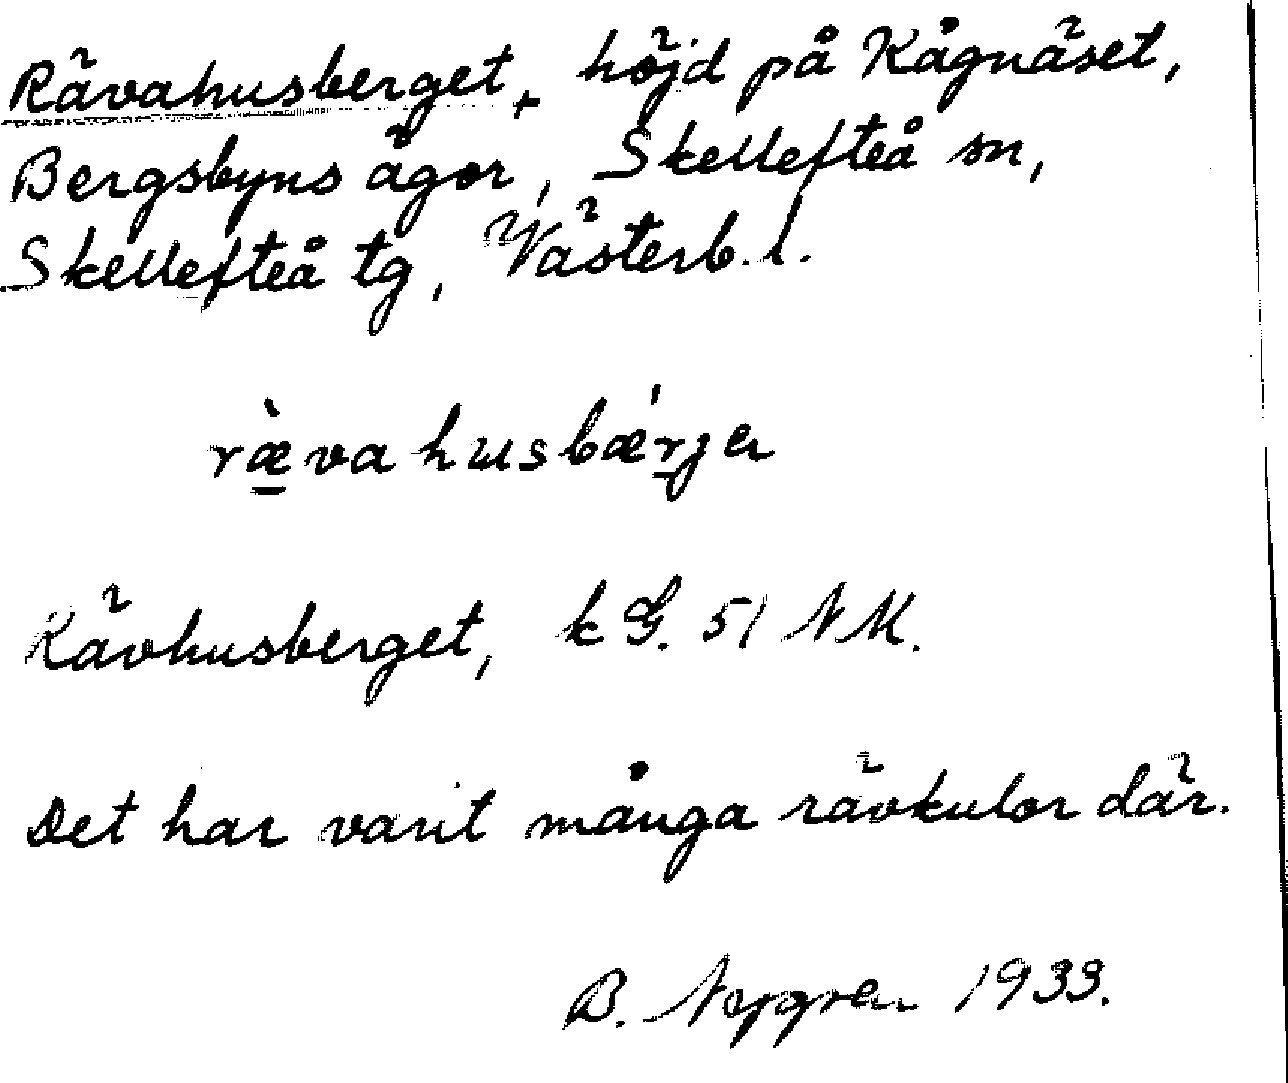 Rävahusberget, höjd på Kågnäset,
Bergsbyns ägor, Skellefteå sn,
Skellefteå tg, Västerb. l.
ræ̀vahusbǽrjen
Rävhusberget, k G. 51 NM.
Det har varit många rävkulor där.
B. Nygren 1933.